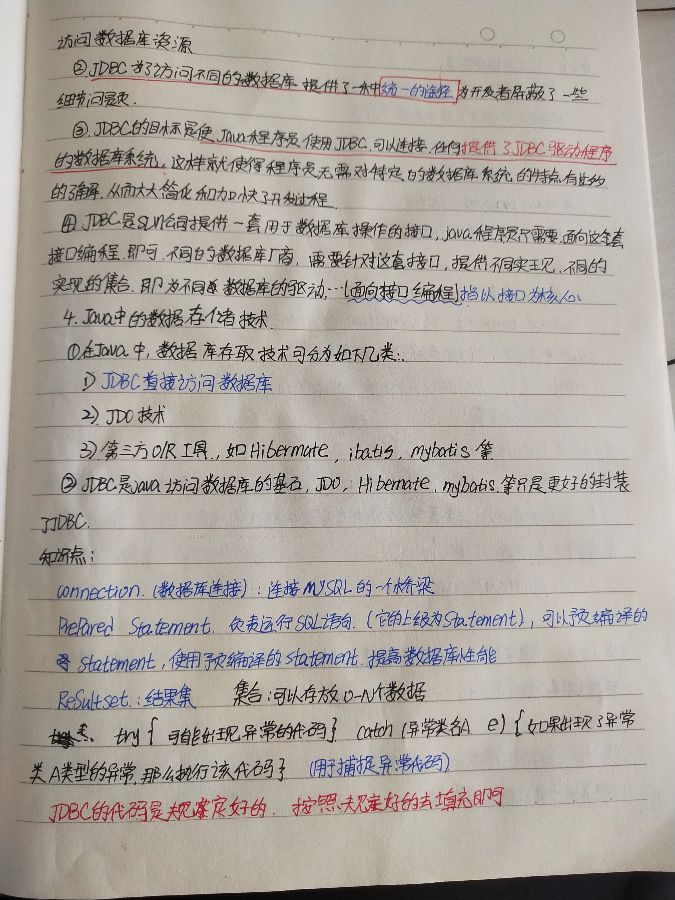 访问数据库资源
②JDBC为了访问不同的数据库 提供了一种统一的途径 为开发者屏蔽了一些
细节问题.
③.JDBC的目标是使Java程序员使用JDBC可以连接任何提供了JDBC驱动程序
的数据库系统,这样就使得程序员无需对特定的数据库系统的特点有过多
的了解,从而大大简化和加快了开发过程.
④ JDBC是SUN公司提供一套用于数据库操作的接口,java程序员只需要面向这套
接口编程即可.不同的数据库厂商,需要针对这套接口,提供不同实现.不同的
实现的集合.即为不同数据库的驱动,…(面向接口编程)指以接口为核心
4.Java中的数据存储技术.
①在Java中,数据库存取技术可分为如下几类:.
1) JDBC直接访问数据库
2).JDO技术
3).第三方O/R工具,如Hibermate,ibatis,mybatis等.
②JDBC是java访问数据库的基石,JDO,Hibernate,mybatis.等只是更好的封装
了JDBC.
知识点:
connection.(数据库连接):连接MySQL的一个桥梁
PrePared Statement. 负责运行SQL语句.(它的上级为Statement),可以预编译的
statement,使用预编译的statement.提高数据库性能
ReSultset.:结果集 集合:可以存放0-N个数据
try{可能出现异常的代码} catch(异常类名A e){如果出现了异常
类A类型的异常,那么执行该代码} (用于捕捉异常代码)
JDBC的代码是规定好的.按照规定好的去填充即可